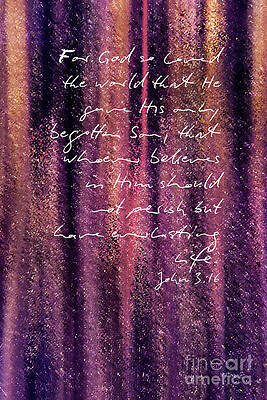 For God so loved
the world that He
gave His only
begotten Son, that
whoever believes
in Him should
not perish but
have everlasting
life.
John 3:16
fineart
america